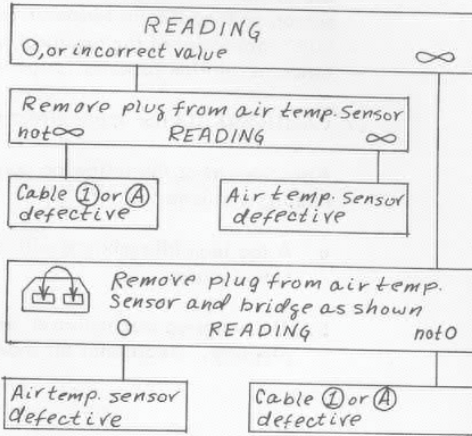 READING
O, or incorrect value ∞
Remove plug from air temp. Sensor
not∞ READING ∞
Cable ① or Ⓐ
defective
Air temp. Sensor
defective
Remove plug from air temp.
Sensor and bridge as shown
O READING not O
Air temp. sensor
defective
Cable ① or Ⓐ
defective